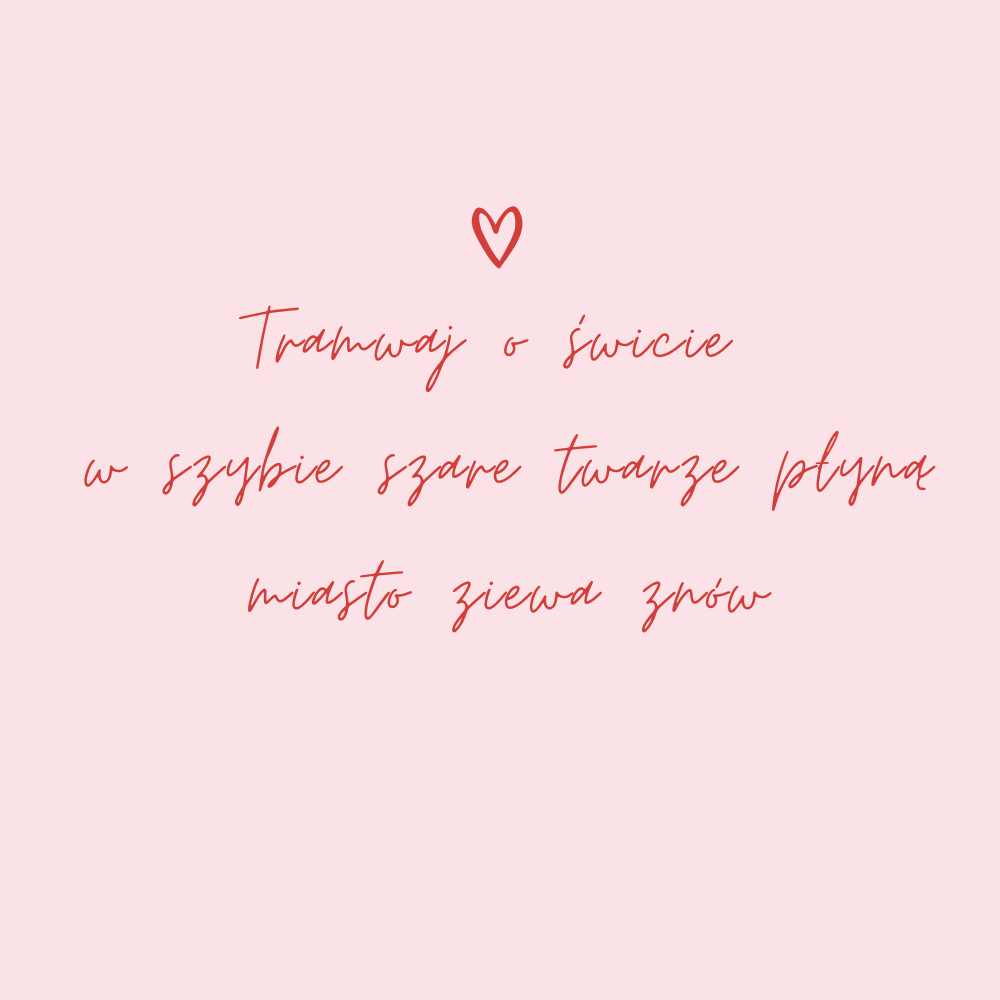 Tramwaj o świcie
w szybie szare twarze płyną
miasto ziewa znów